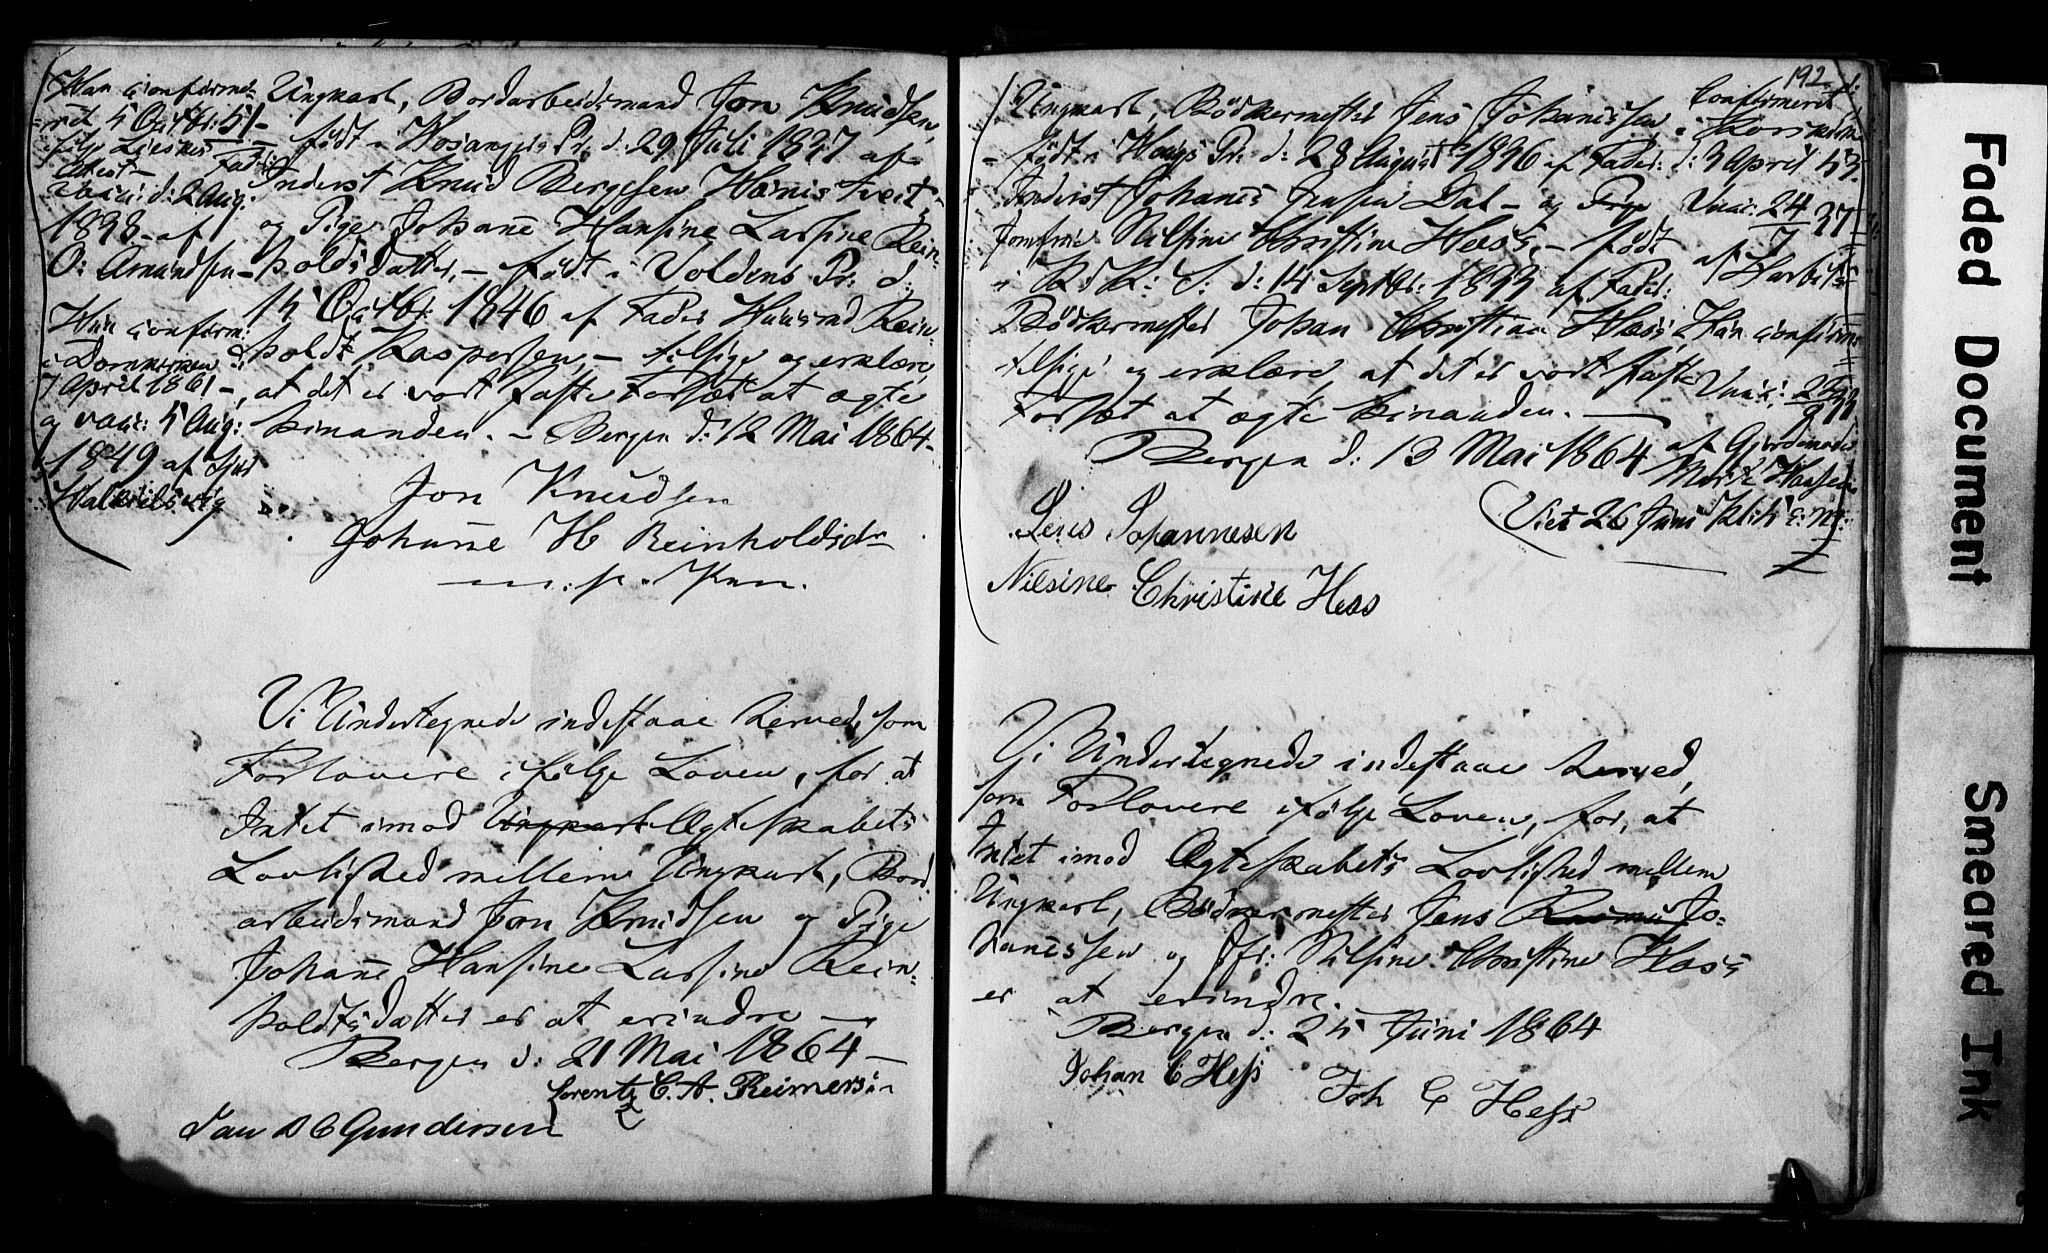 Han confirme-
ret 5 Octbr: 51 -
ifølge
Attest -
vacc: d: 2 Aug:
1838 - af
O: Amundsen -
Hun confirm:
i Domkirken d:
7 April 1861 -,
og vacc: 5 Aug:
1849 af
Ungkarl, Bordarbeidsmand Jon Knudsen,
født i Hosangers Pr: d: 29 Juli 1837 af
Fader: Inderst Knud Bergesen Hannistveit -
og Pige Johanne Hansine Larsine Rein-
holdsdatter, - født i Voldens Pr: d:
15 Octbr: 1846 af Fader Huusmd Rein-
holdt Kaspersen, - tilsige og erklære,
at det er vort faste Forsæt at ægte
hinanden. - Bergen d: 12 Mai 1864 -
Jon Knudsen
Johanne H Reinholdsdr
m. p. Pen.
Vi Undertegnede indestaae herved, som
Forlovere ifølge Loven, for at
Intet imod Ungkarl Ægteskabets
Lovlighed mellem Ungkarl, Bord-
arbeidsmand Jon Knudsen og Pige
Johanne Hansine Larsine Rein-
holdtsdatter er at erindre -
Bergen d: 21 Mai 1864 -
Lorentz C. A. Reimers
Jan B C Gundersen
192
Ungkarl, Bødkermester Jens Johannessen,
født i Hougs Pr: d: 28 August 1836 af Fader:
Inderst Johanes Jensen Dal - og Pige
Jomfru Nilsine Christine Hess, - født
i K: S: d: 14 Septbr: 1833 af Fader:
Bødkermester Johan Christian Hess,
tilsige og erklære, at det er vort faste
Forsæt at ægte hinanden. -
Bergen d: 13 Mai 1864
Confirmeret
i Korskirken
d: 3 April 53.
Vacc: 24/7 37
af
Hun confirm:
Vacc:
af Gjordemoder
Viet 26 Juni Kl: 5 e: m:
Jens Johannesen
Nilsine Christine Hess
Vi Undertegnede indestaae herved,
som Forlovere ifølge Loven, for, at
Intet imod Ægteskabets Lovlighed mellem
Ungkarl, Bødkermester Jens Rasmus Jo-
hanessen og Jfr: Nilsine Christine Hess
er at erindre.
Bergen d: 25 Juni 1864
Johan C Hess
Joh C Hess
Faded Document
Smeared Ink